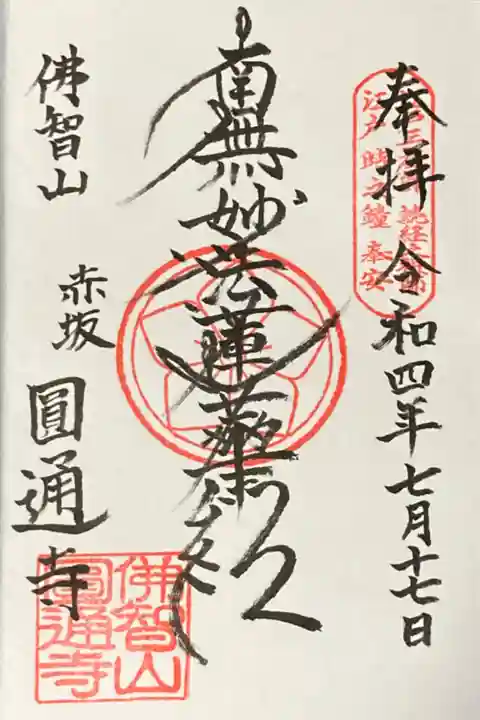 奉拝 令和四年七月十七日
江戸 時之鐘 奉安
南無妙法蓮華経
佛智山
赤坂 圓通寺
佛智山
圓通寺